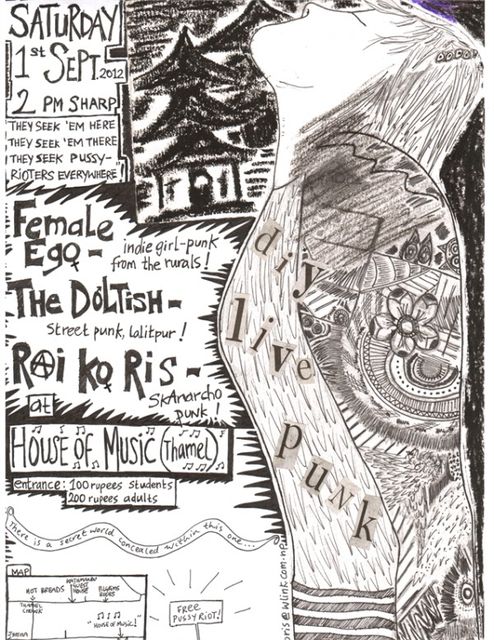 SATURDAY
1st SEPT. 2012
2 PM SHARP
THEY SEEK 'EM HERE
THEY SEEK 'EM THERE
THEY SEEK PUSSY-
RIOTERS EVERYWHERE
Female
Ego -
indie girl-punk
from the rurals!
THE DOLTISH -
Street punk, lalitpur!
RAI KO RIS -
SKAnarcho
punk!
at
HOUSE OF MUSIC (Thamel)
entrance: 100 rupees students
200 rupees adults
There is a secret world concealed within this one...
diy
live
punk
MAP
HOT BREADS
GUEST
HOUSE
PILGRIMS
BOOKS
THAMEL
CHOWK
"HOUSE OF MUSIC!"
FREE
PUSSY RIOT!
oris@wlink.com.np